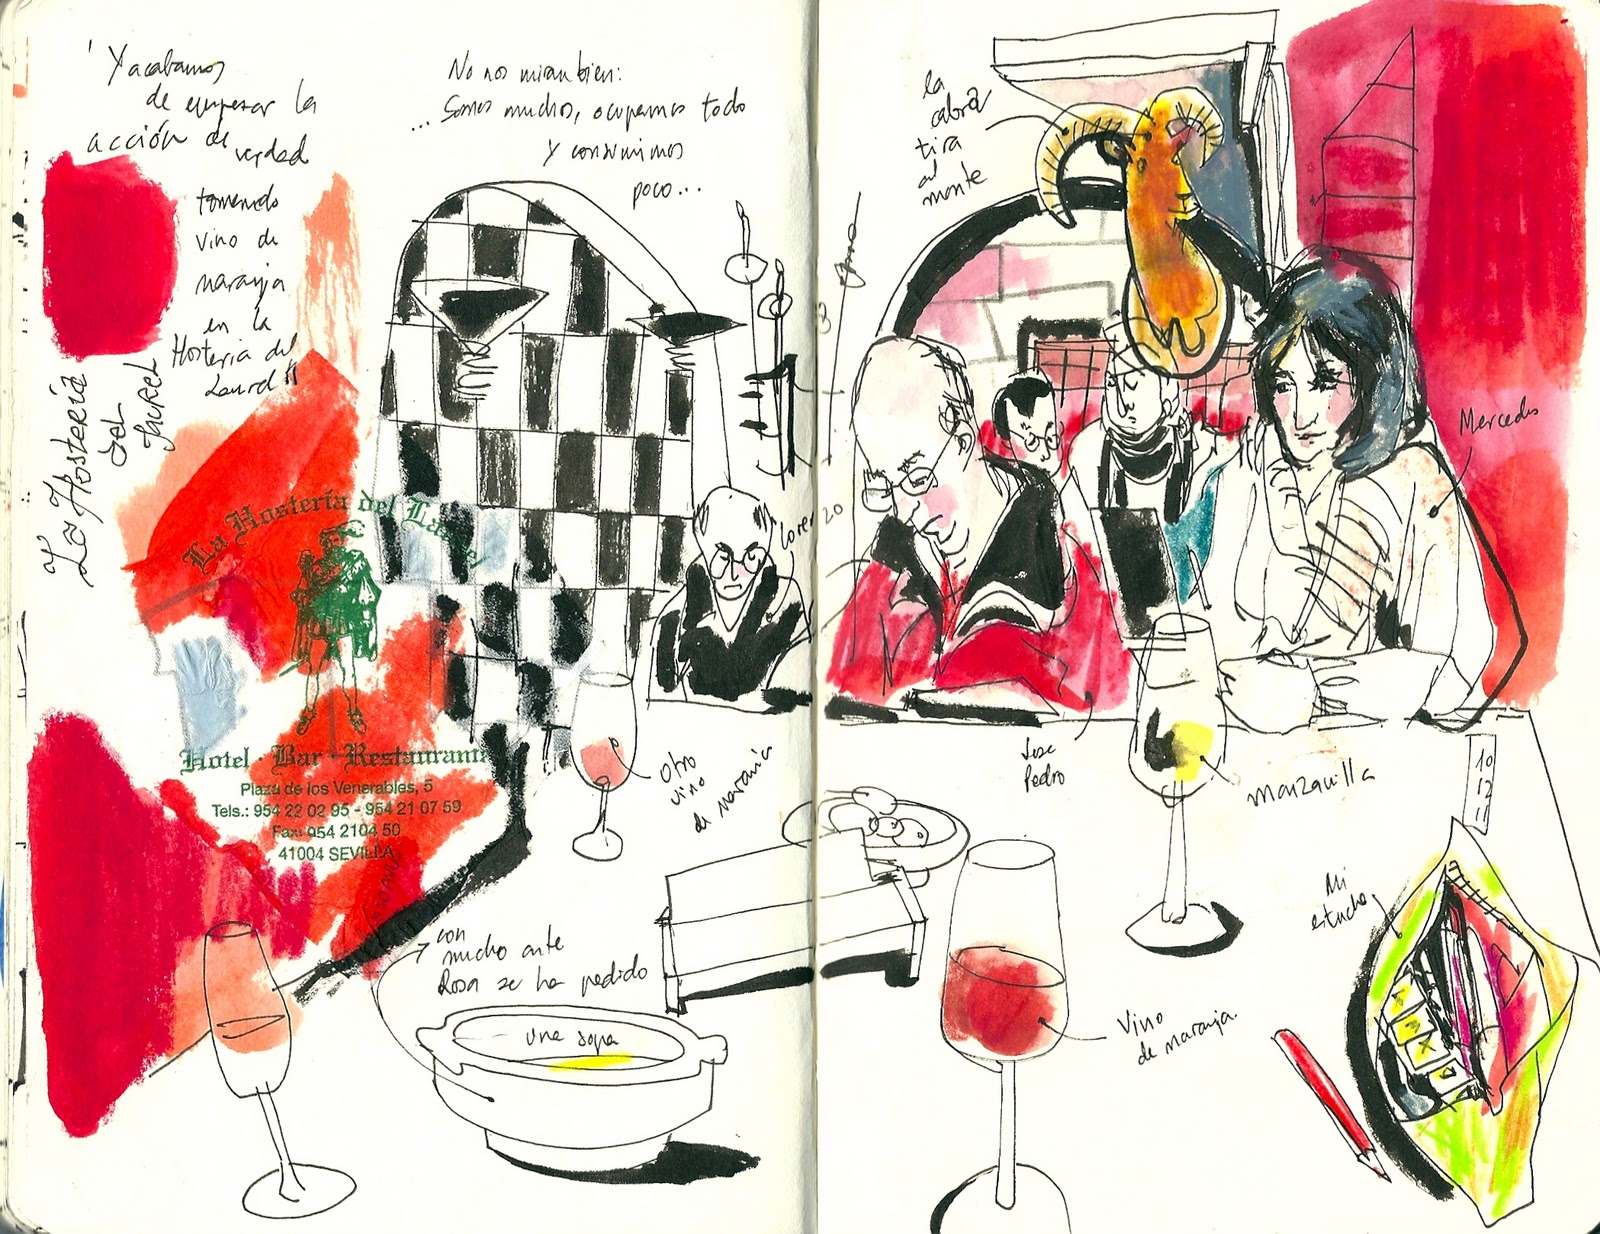 Y acabamos
de empezar la
acción de
verdad
tomando
vino de
naranja
en la
Hosteria del
Laurel
No nos miran bien:
... Somos muchos, ocupamos todo
y consumimos
poco...
"La Hostería
del
Laurel
La Hostería del Laurel
Hotel · Bar · Restaurante
Plaza de los Venerables, 5
Tels.: 954 22 02 95 - 954 21 07 59
Fax: 954 2104 50
41004 SEVILLA
Otro
vino
de naranja
con
mucho arte
Rosa se ha pedido
una sopa
la
cabra
tira
al
monte
Mercedes
Jose
Pedro
manzanilla
10
12
11
Mi
estuche
Vino
de naranja.